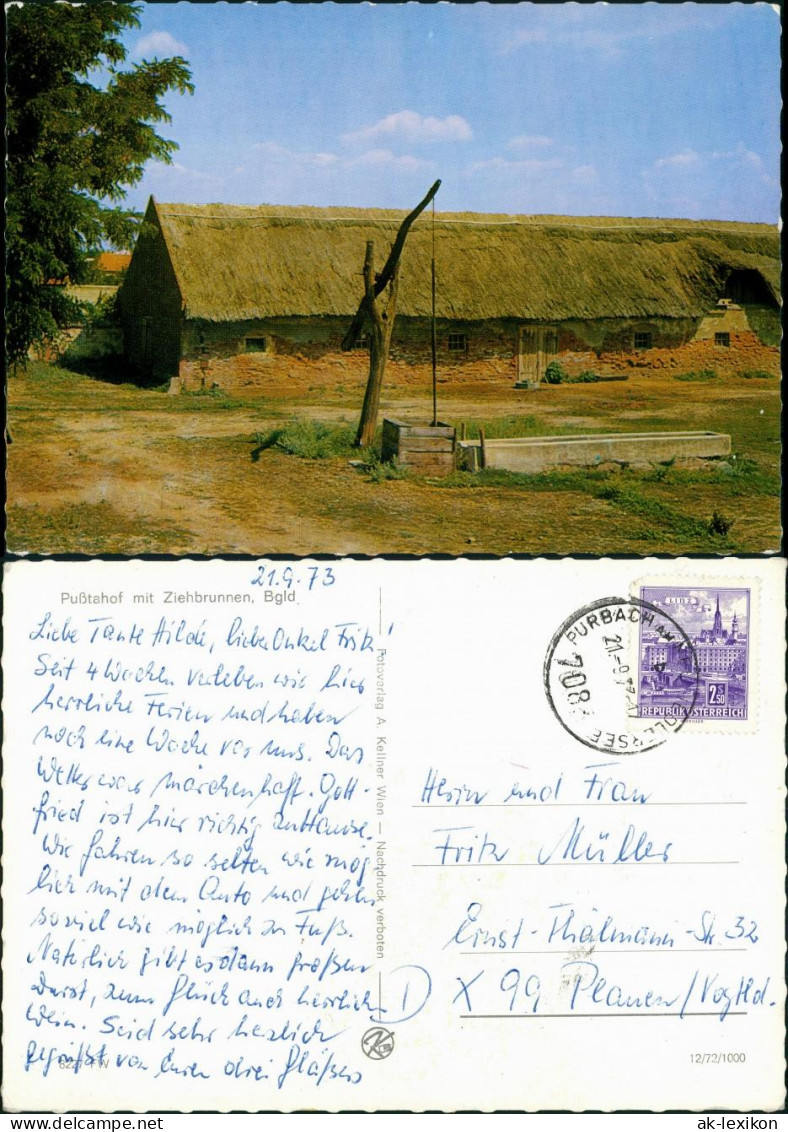 Pußtahof mit Ziehbrunnen, Bgld
21.9.73
Liebe Tante Hilde, liebe Onkel Fritz!
Seit 4 Wochen verleben wir hier
herrliche Ferien und haben
noch eine Woche vor uns. Das
Wetter war märchenhaft. Gott-
fried ist hier richtig zuhause.
Wir fahren so selten wie mög
lich mit dem Auto und gehen
soviel wie möglich zu Fuß.
Natürlich gibt es dann großen
Durst, zum Glück auch herrlich
Wein. Seid sehr herzlich
gegrüßt von Euren drei Gläßers
8227 FW
Fotoverlag A. Kellner Wien — Nachdruck verboten
PURBACH AM
21.-9.73
7083
LINZ
2 S 50
REPUBLIK ÖSTERREICH
Herrn und Frau
Fritz Müller
Ernst-Thälmann-Str. 32
X 99 Plauen/Vogtld.
D
12/72/1000
ak-lexikon
ak-lexikon.com